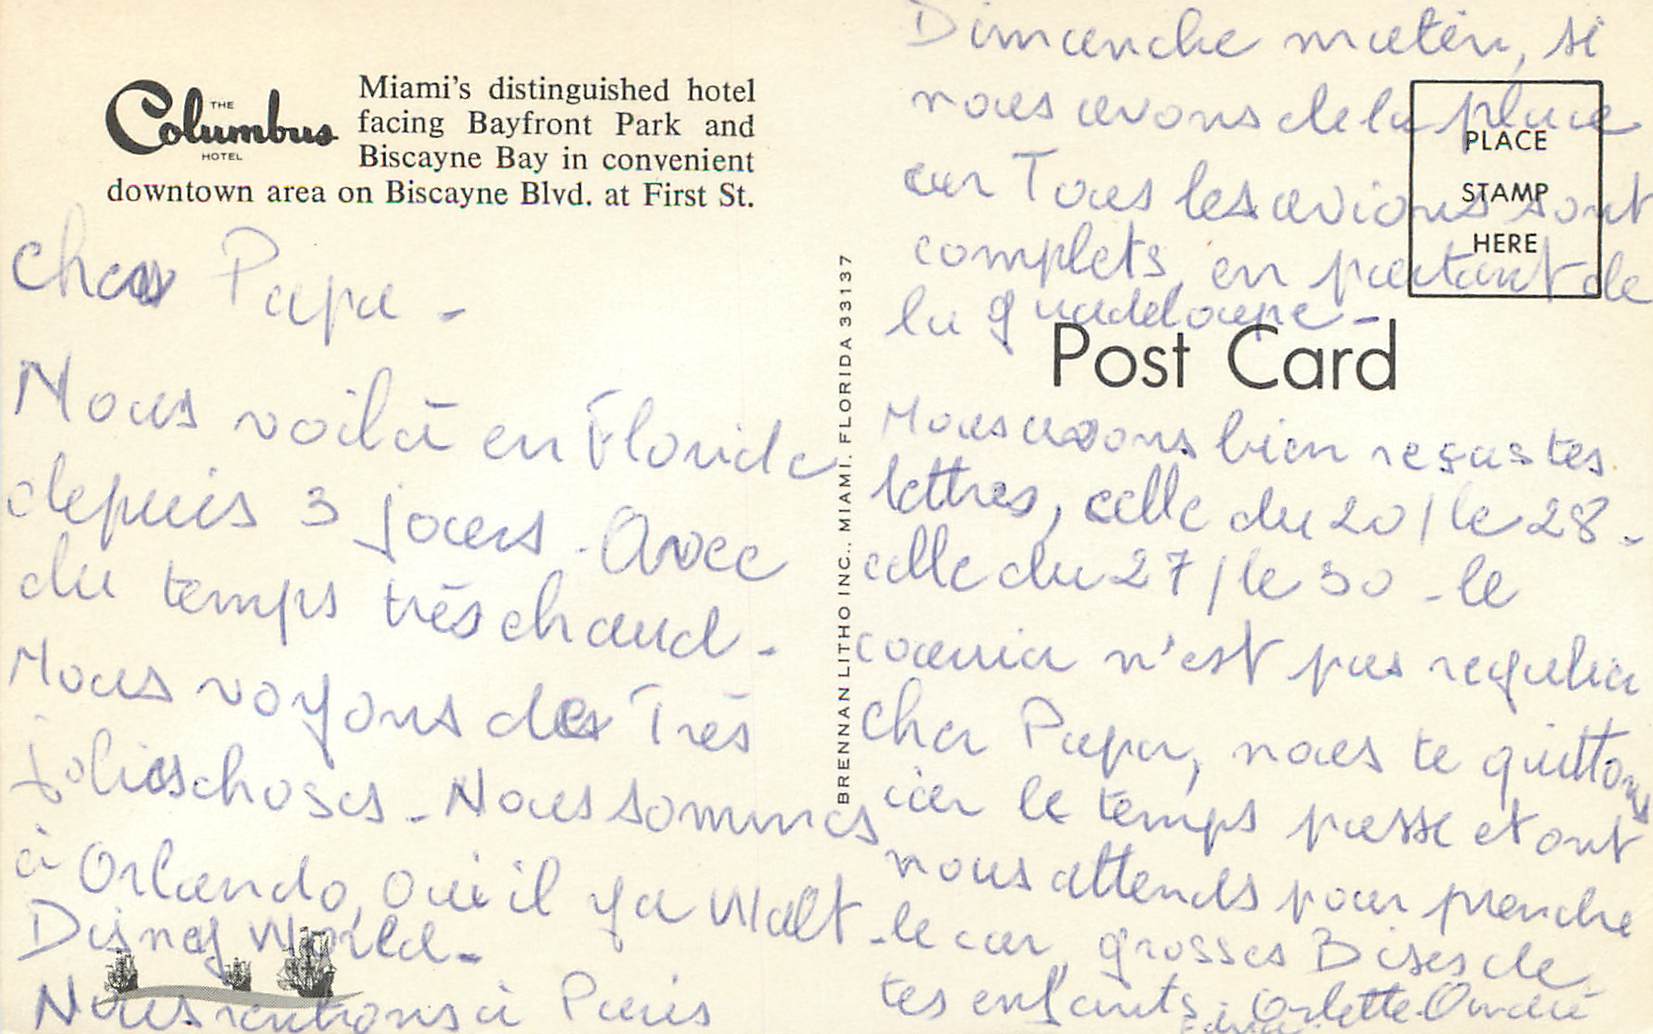 THE
Columbus
HOTEL
Miami's distinguished hotel
facing Bayfront Park and
Biscayne Bay in convenient
downtown area on Biscayne Blvd. at First St.
cher Papa -
Nous voilà en Floride
depuis 3 jours. Avec
du temps très chaud -
Nous voyons des Très
jolies choses - Nous sommes
à Orlando, où il y a Walt
Disney World -
Nous rentrons à Paris
BRENNAN LITHO INC., MIAMI, FLORIDA 33137
Dimanche matin, si
nous avons de la place
car Tous les avions sont
complets, en partant de
la guadeloupe -
PLACE
STAMP
HERE
Post Card
Nous avons bien reçus tes
lettres, celle du 20 / le 28 -
celle du 27 / le 30 - le
courrier n'est pas regulier
Cher Papa, nous te quittons
car le temps passe et ont
nous attends pour prendre
le car, grosses Bises de
tes enfants : Orlette